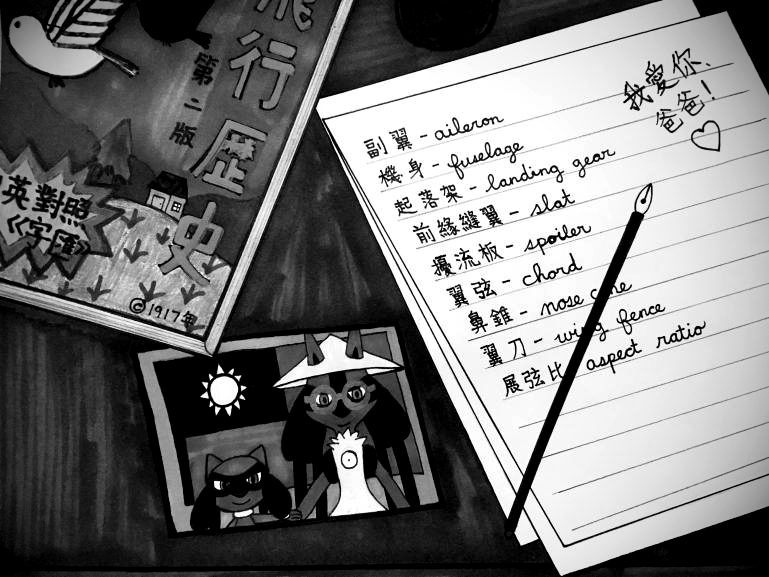 飛行歷史
第二版
英對照
《字匯》
©1917年
我愛你,
爸爸!
副翼 - aileron
機身 - fuselage
起落架 - landing gear
前緣縫翼 - slat
擾流板 - spoiler
翼弦 - chord
鼻錐 - nose cone
翼刀 - wing fence
展弦比 - aspect ratio